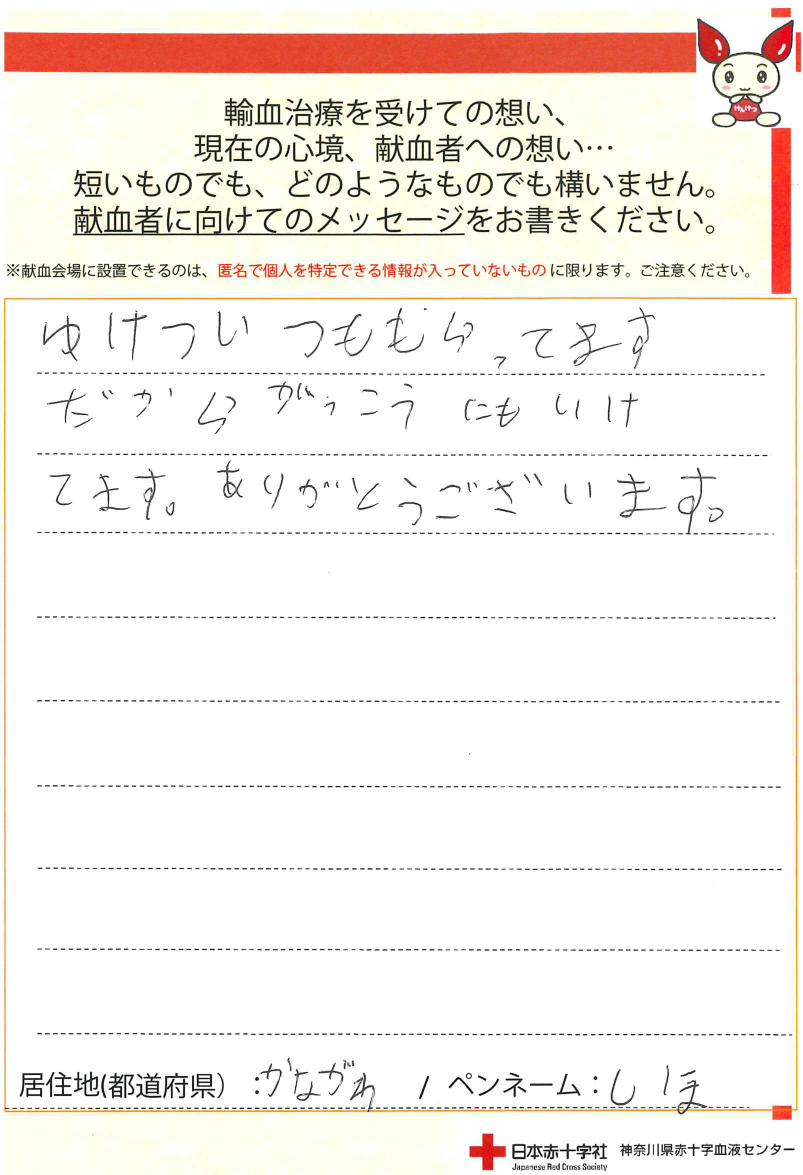 けんけつ
輸血治療を受けての想い、
現在の心境、献血者への想い…
短いものでも、どのようなものでも構いません。
献血者に向けてのメッセージをお書きください。
※献血会場に設置できるのは、匿名で個人を特定できる情報が入っていないものに限ります。ご注意ください。
ゆけついつももらってます
だからがっこうにもいけ
てます。ありがとうございます。
居住地(都道府県）:かながわ / ペンネーム：しほ
日本赤十字社 神奈川県赤十字血液センター
Japanese Red Cross Society